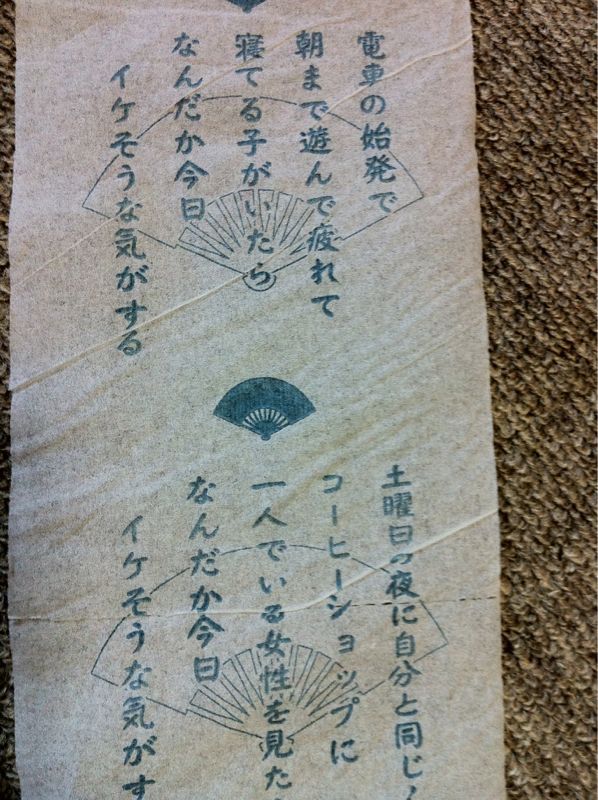 電車の始発で
朝まで遊んで疲れて
寝てる子がいたら
なんだか今日
イケそうな気がする
土曜日の夜に自分と同じ
コーヒーショップに
一人でいる女性を見た
なんだか今日
イケそうな気がす